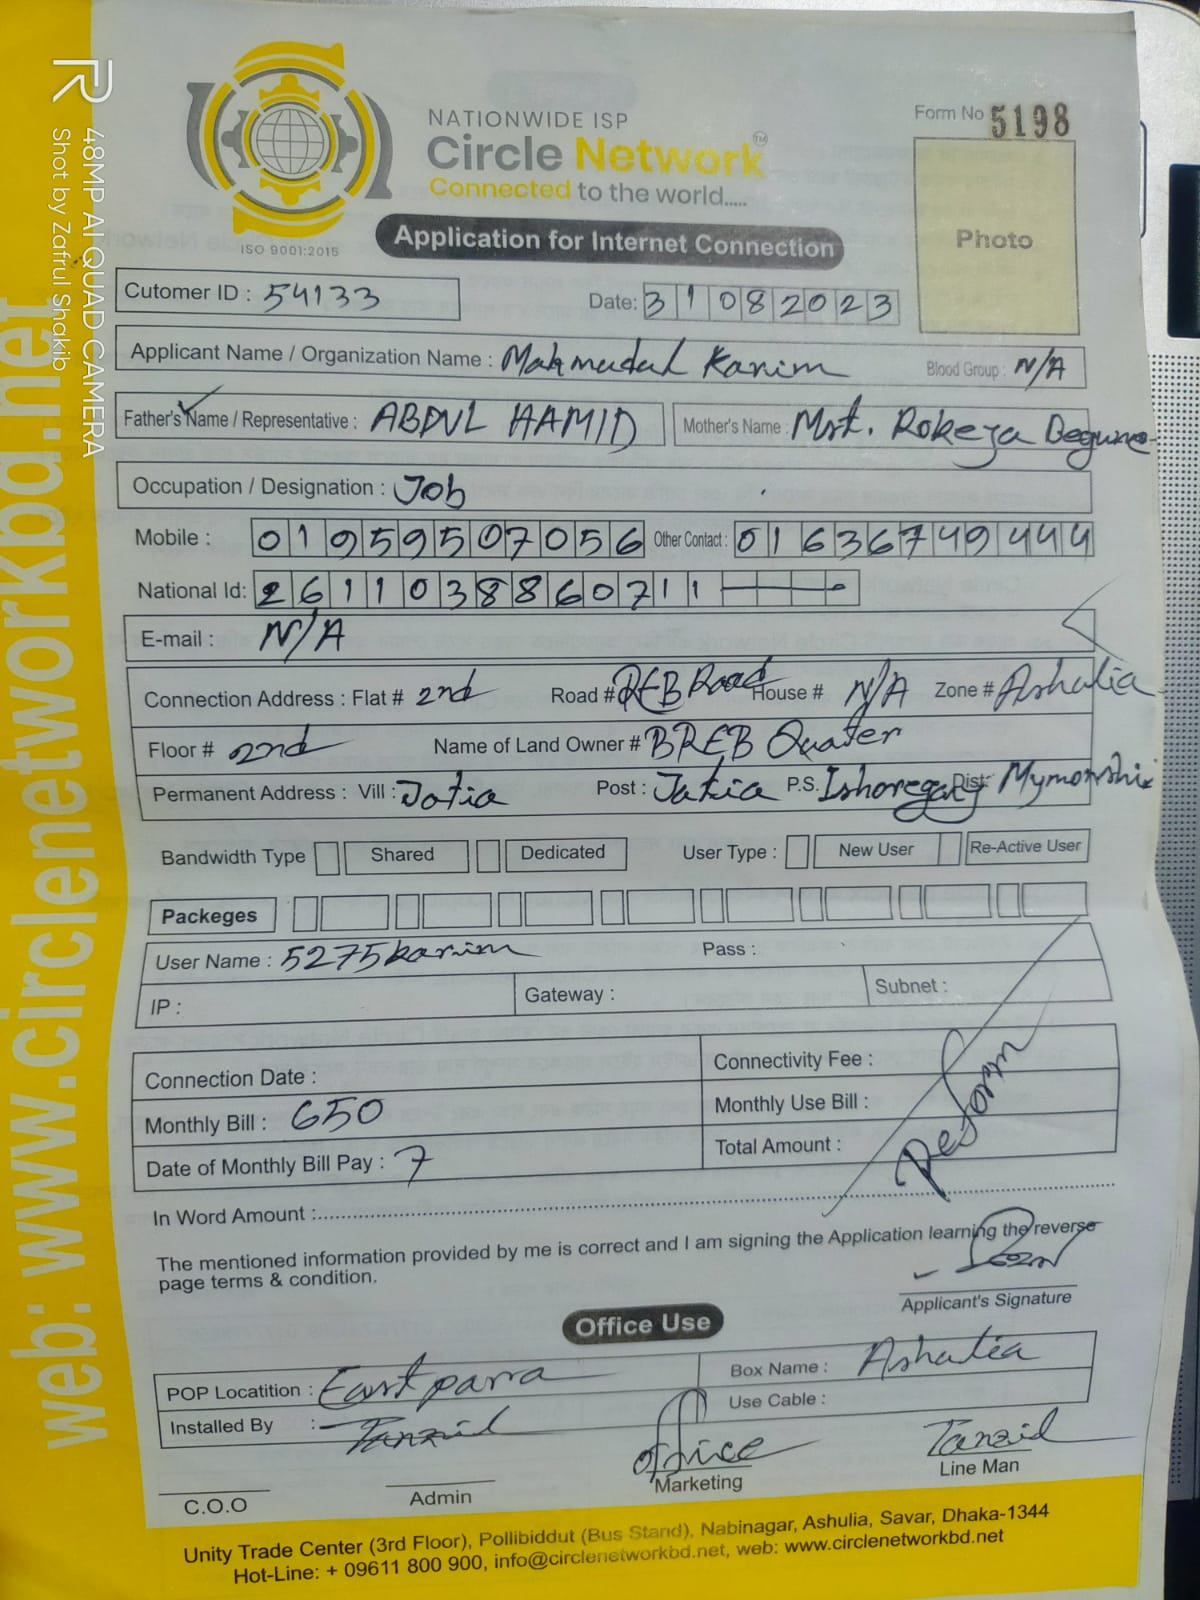 NATIONWIDE ISP
Circle Network™
Connected to the world.....
ISO 9001:2015
Form No 5198
Photo
Application for Internet Connection
Cutomer ID : 54133 Date: 31082023
Applicant Name / Organization Name : Mahmudul Karim Blood Group : N/A
Father's Name / Representative : ABDUL HAMID Mother's Name : Mst. Rokeya Begum
Occupation / Designation : Job
Mobile : 01959507056 Other Contact : 01636749444
National Id: 2611038860711
E-mail : N/A
Connection Address : Flat # 2nd Road # REB Road House # N/A Zone # Ashulia
Floor # 2nd Name of Land Owner # BREB Quater
Permanent Address : Vill : Jatia Post : Jatia P.S. Ishoregonj Dist:
Bandwidth Type Shared Dedicated User Type : New User Re-Active User
Packeges
User Name : 5275karim Pass :
IP : Gateway : Subnet :
Connection Date : Connectivity Fee :
Monthly Bill : 650 Monthly Use Bill :
Date of Monthly Bill Pay : 7 Total Amount :
Reform
In Word Amount :
The mentioned information provided by me is correct and I am signing the Application learning the reverse
page terms & condition.
Applicant's Signature
Office Use
POP Locatition : East para Box Name : Ashulia
Installed By : Tanzid Use Cable :
office Tanzid
C.O.O Admin Marketing Line Man
Unity Trade Center (3rd Floor), Pollibiddut (Bus Stand), Nabinagar, Ashulia, Savar, Dhaka-1344
Hot-Line: + 09611 800 900, info@circlenetworkbd.net, web: www.circlenetworkbd.net
web: www.circlenetworkbd.net
48MP AI QUAD CAMERA
Shot by Zafrul Shakib